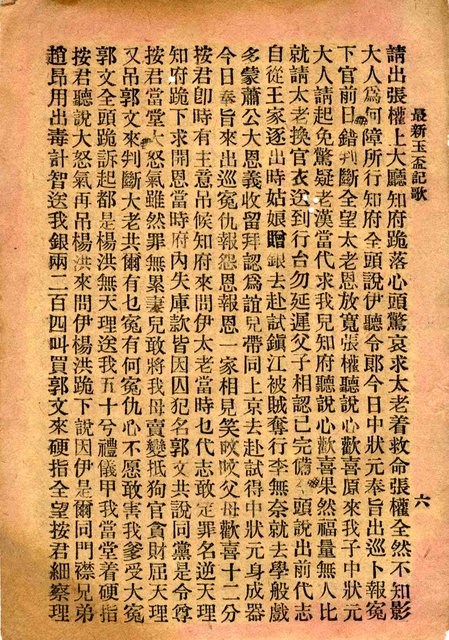 最新玉盃記歌
六
請出張權上大聽知府跪落心頭驚哀求太老着救命張權全然不知影
大人為何障所行知府全頭說伊聽令郎今日中狀元奉旨出巡卜報冤
下官前日錯判斷全望太老恩放寬張權聽說心歡喜原來我子中狀元
大人請起免驚疑老漢當代求我兒知府聽說心歡喜果然福量無人比
就請太老換官衣送到行台勿延遲父子相認已完備 頭說出前代志
自從王家逐出時姑娘贈銀去赴試鎮江被賊奪行李無奈就去學般戲
多蒙蕭公大恩義收留拜認為誼兒帶同上京去赴試得中狀元身成器
今日奉旨來出巡冤仇報怨恩報恩一家相見笑 父母歡喜十二分
按君卽時有主意吊候知府來問伊太老當時乜代志敢定罪名逆天理
知府跪下求開恩當時府內失庫款皆因囚犯名郭文共說同黨是令尊
按君當堂大怒氣雖然罪無累妻兒敢將我母賣變抵狗官貪財屈天理
又吊郭文來判斷大老共爾有乜冤有何冤仇心不愿敢害我爹受大冤
郭文全頭跪訴起都是楊洪無天理送我五十兮禮儀甲我當堂着硬指
按君聽說大怒氣再吊楊洪來問伊楊洪跪下說因伊是爾同門襟兄弟
趙昂用出毒計智送我銀兩二百四叫買郭文來硬指全望按君細察理